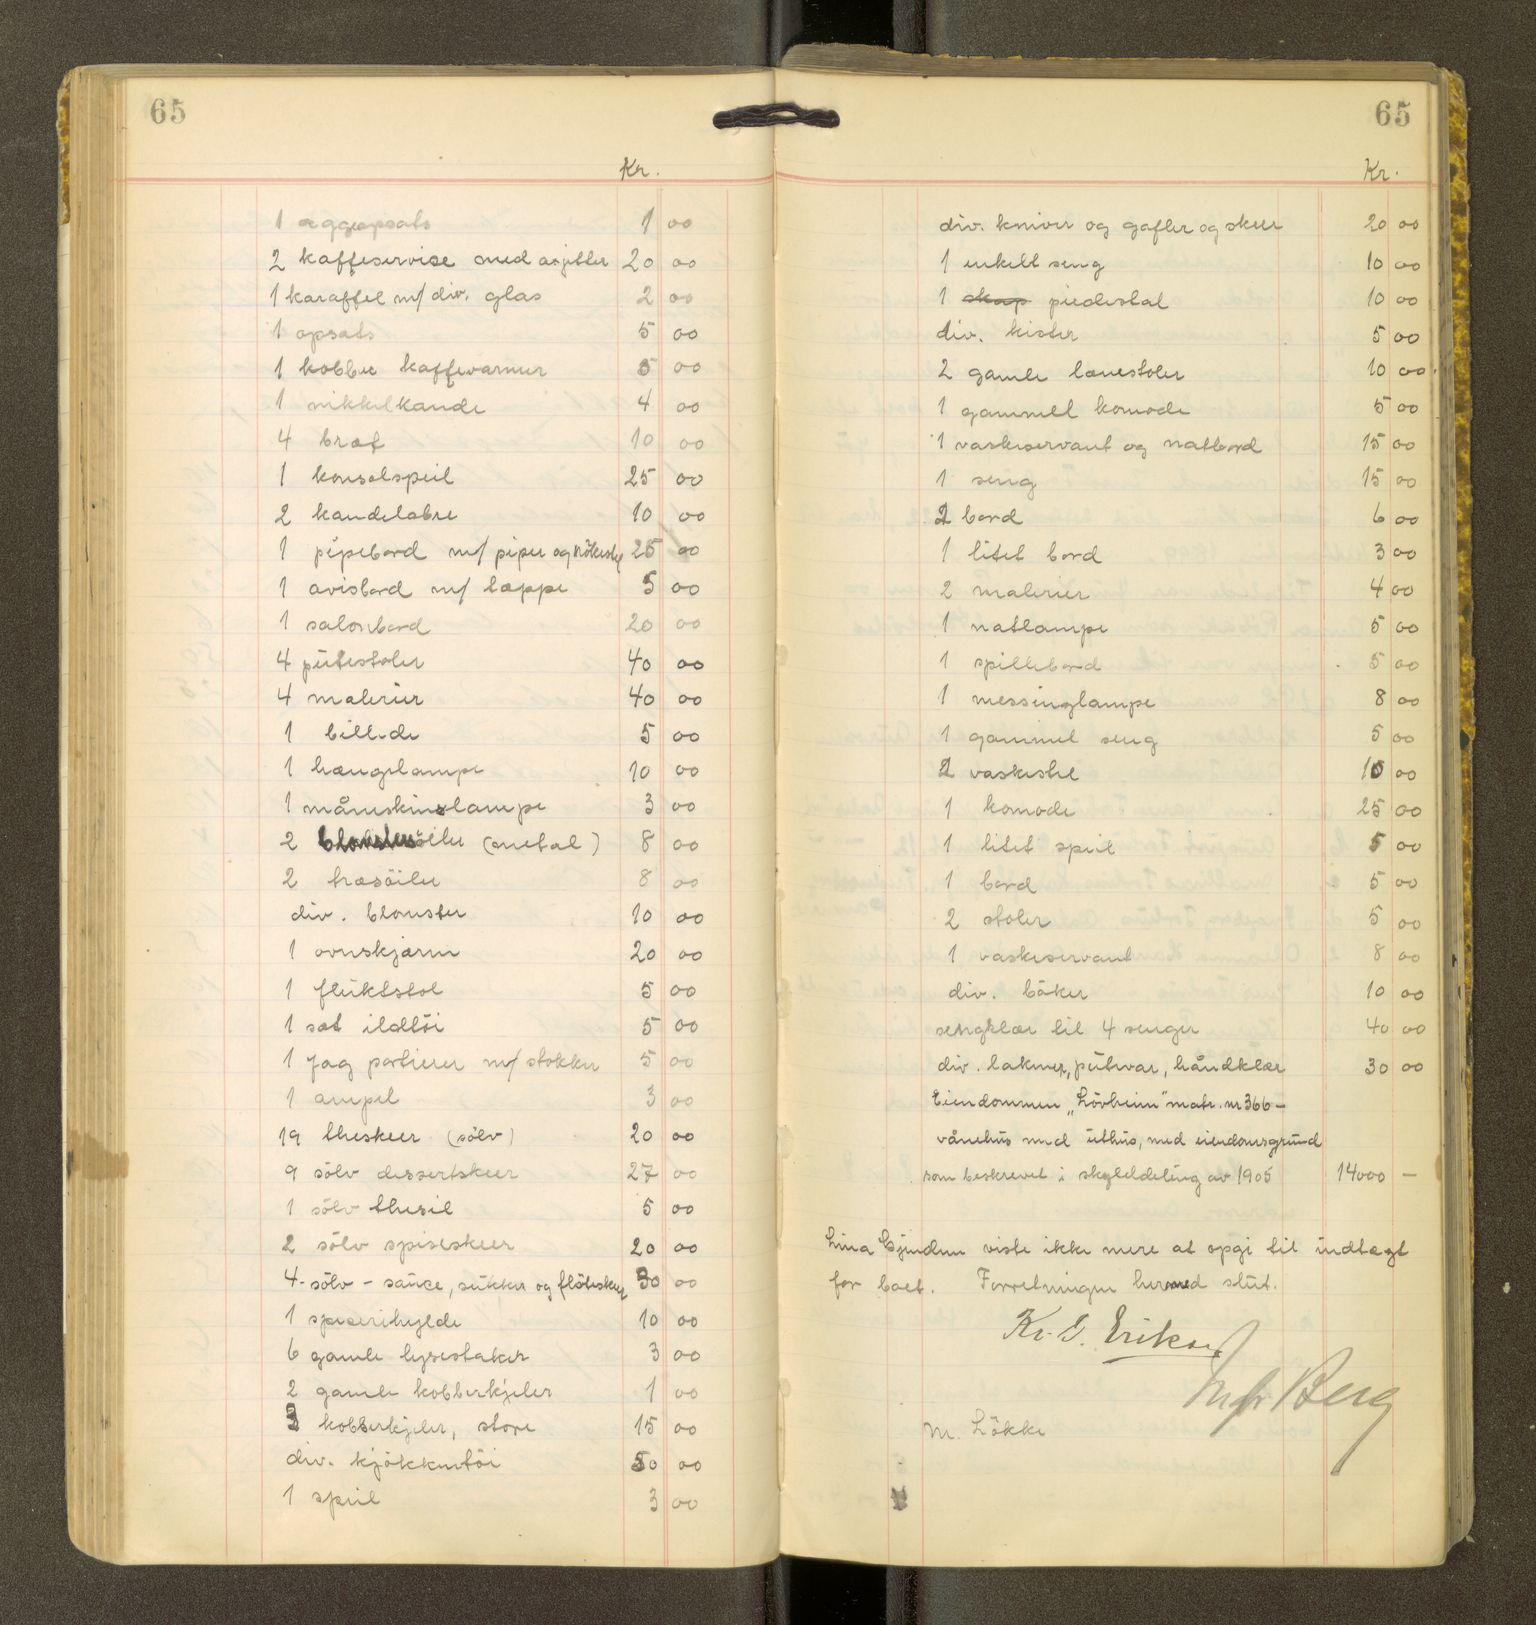 65
Kr.
1 æggeopsats 1 00
2 kaffeservise med asjetter 20 00
1 karaffel m/ div. glas 2 00
1 opsats 5 00
1 kobber kaffevarmer 5 00
1 nikkelkande 4 00
4 bræt 10 00
1 konsolspeil 25 00
2 kandelabre 10 00
1 pipebord m/ piper og 25 00
1 avisbord m/ tæppe 5 00
1 salonbord 20 00
4 putestoler 40 00
4 malerier 40 00
1 billede 5 00
1 hængelampe 10 00
1 måneskinslampe 3 00
2 (metal) 8 00
2 træsöiler 8 00
div. blomster 10 00
1 ovnskjærm 20 00
1 fluktstol 5 00
1 sæt ildtöi 5 00
1 fag portierer m/ stokker 5 00
1 ampel 3 00
19 theskeer (sölv) 20 00
9 sölv dessertskeer 27 00
1 sölv thesil 5 00
2 sölv spiseskeer 20 00
4 - sölv - sause, sukker og flöteskeer 30 00
1 spiserihylde 10 00
6 gamle lysestaker 3 00
2 gamle kobberkjeler 1 00
3 kobberkjeler, store 15 00
div. kjökkentöi 50 00
1 speil 3 00
65
Kr.
div. kniver og gafler og skeer 20 00
1 enkelt seng 10 00
1 skap piedestal 10 00
div. kister 5 00
2 gamle lænestoler 10 00
1 gammel komode 5 00
1 vaskeservant og natbord 15 00
1 seng 15 00
2 bord 6 00
1 litet bord 3 00
2 malerier 4 00
1 natlampe 5 00
1 spillebord 5 00
1 messinglampe 8 00
1 gammel seng 5 00
2 vaskestel 10 00
1 komode 25 00
1 litet speil 5 00
1 bord 5 00
2 stoler 5 00
1 vaskeservant 8 00
div. böker 10 00
sengklær til 4 senger 40 00
div. lakner, putevar, håndklær 30 00
Eiendommen „Lövheim" matr. nr 366 -
vånehus med uthus, med eiendomsgrund
som beskrevet i skylddeling av 1905 14000 -
Lina Gjendem viste ikke mere at opgi til indtægt
for boet. Forretningen hermed slut.
Kr. S. Eriksen
Berg
M. Lökke